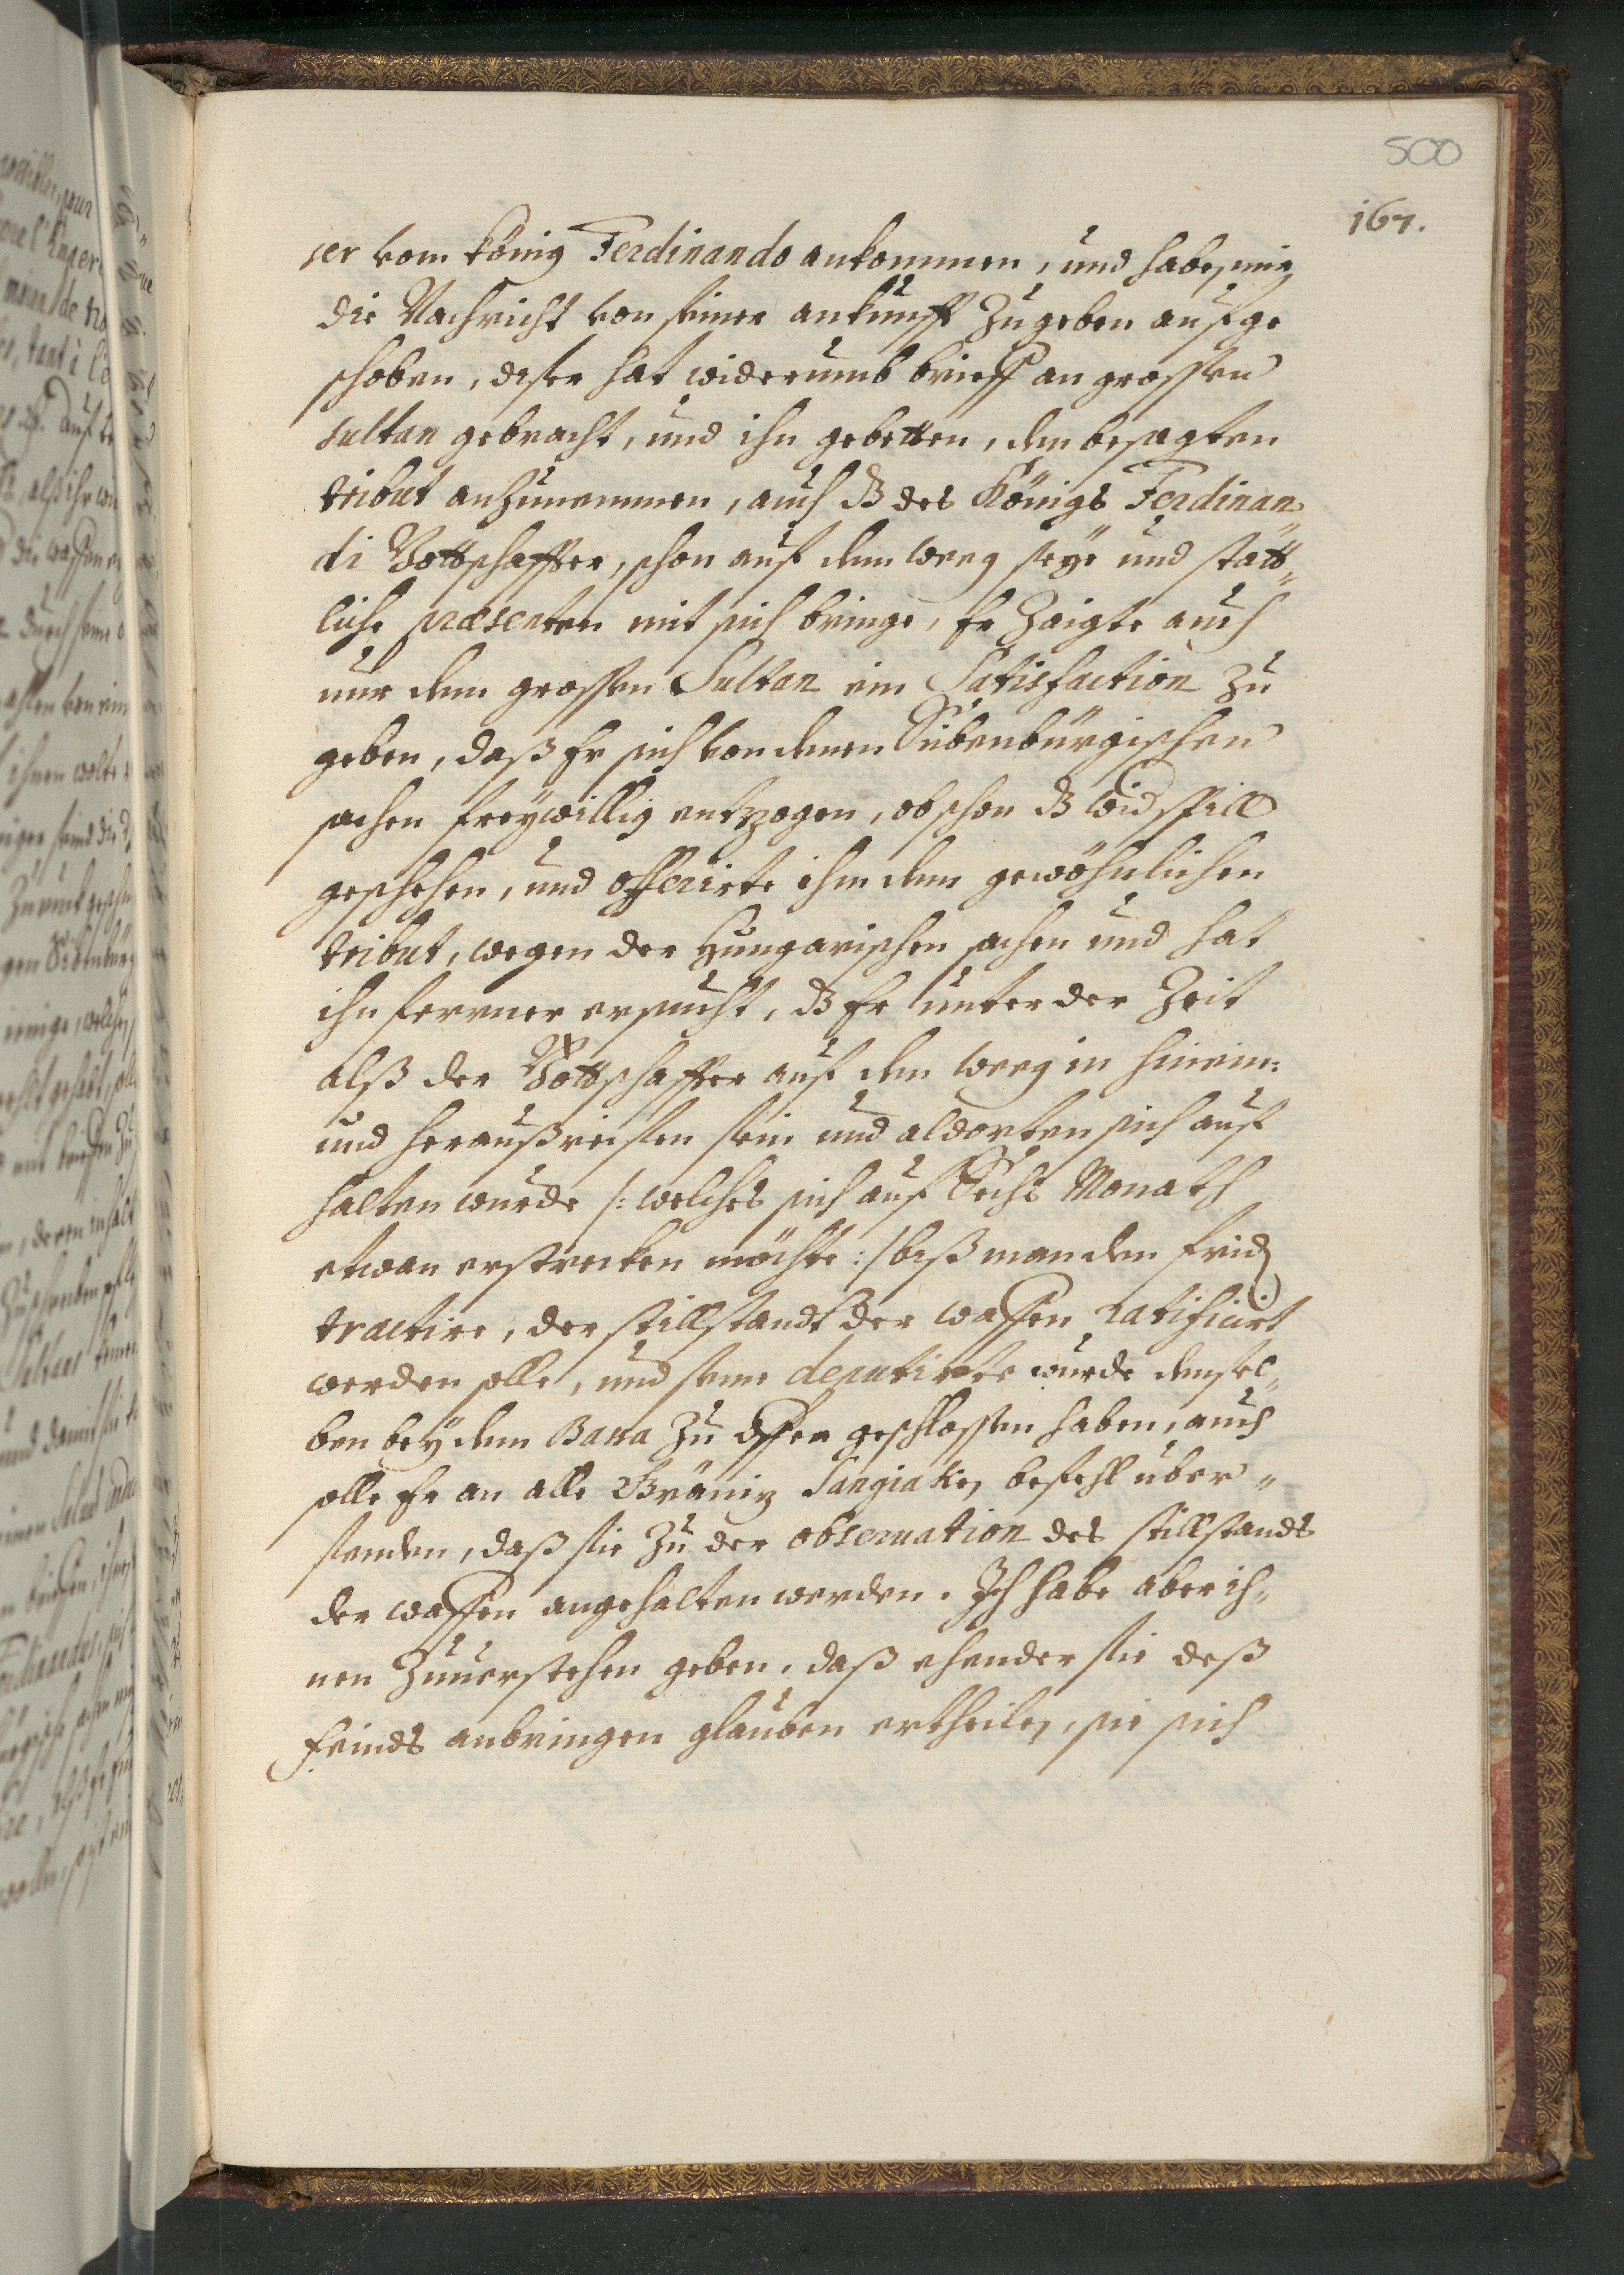 500
167.
ser vom König Ferdinando ankommen, und haben mir
die Nachricht von seiner ankunfft Zugeben aufge
schoben, diser hat widerumb brieff an grossen
sultan gebracht, und ihn gebetten, den besagten
tribut anzunemmen, auch dz des Königs Ferdinan
di Bottschaffter, schon auf dem weeg seye und statt„
liche præsenten mit sich bringe, Er Zaigte auch
nur dem grossen Sultan ein Satisfaction zu
geben, daß Er sich von denen Sübenbürgischen
sachen freywillig entzogen, obschon dz widspill
geschehen, und offerirte ihm den gewöhnlichen
tribut, wegen der Hungarischen sachen und hat
ihn ferrner ersucht, dz Er unter der Zeit
alß der Bottschaffter auf dem weeg in hinein:
und heraußreisen sein und aldorten sich auf
halten wurde /: welches sich auf Sechs Monath
etwan erstrecken möchte :/ biß man den frid
tractire, der stillstandt der waffen ratificirt
werden solle, und seine deputirte wurde densel„
ben bey dem Bassa zu Offen geschlossen haben, auch
solle Er an alle Gräniz Sangiaken befehl über„
senden, daß sie zu der observation des stillstands
der waffen angehalten werden. Ich habe aber ih„
nen Zuuerstehen geben, daß ehender sie deß
feinds anbringen glauben ertheilen, sie sich